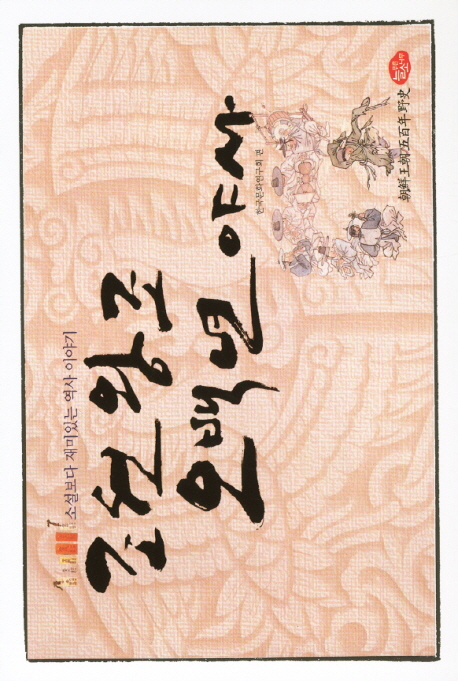 소설보다 재미있는 역사 이야기
조선왕조
오백년 야사
한국문화연구회 편
朝鮮王朝五百年野史
늘푸른소나무